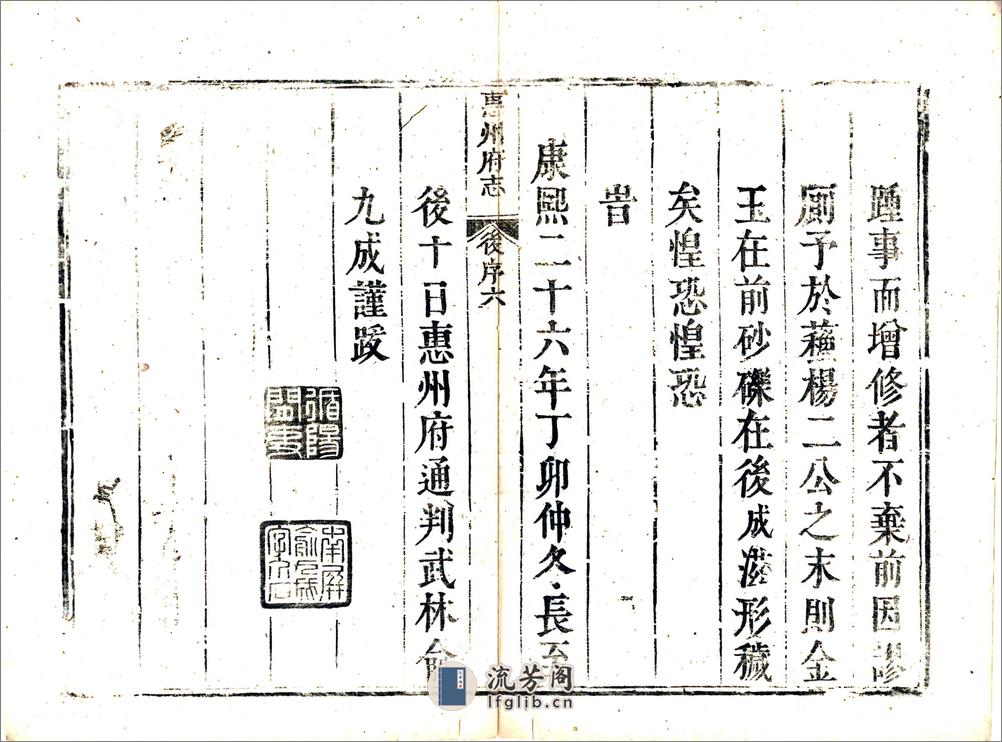 踵事而增修者不棄前因謬
厠予於蘓楊二公之末則金
玉在前砂礫在後成滋形穢
矣惶恐惶恐
旹
康熙二十六年丁卯仲冬長至
惠州府志 後序六
後十日惠州府通判武林俞
九成謹跋
流芳阁
lfglib.cn